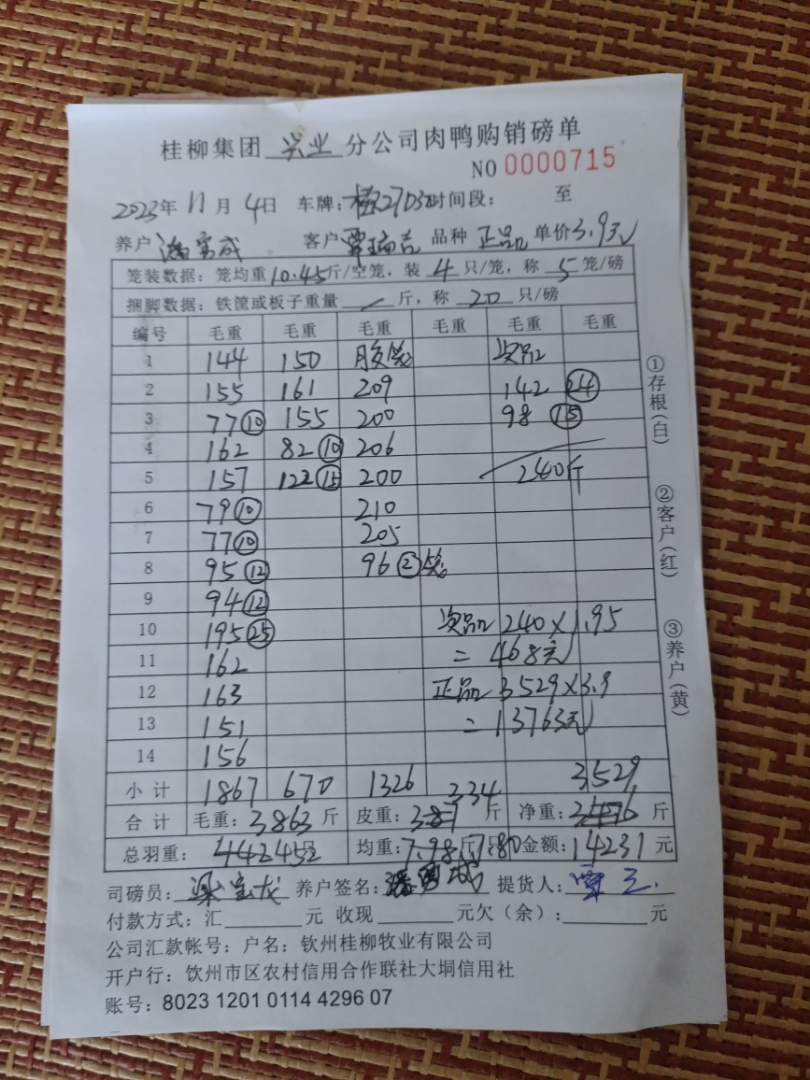 桂柳集团 兴业 分公司肉鸭购销磅单
NO 0000715
2023年 11月 4日 车牌: 时间段: 至
养户 潘宝成 客户 覃瑞吉 品种 正品 单价 3.9元
笼装数据: 笼均重 10.45 斤/空笼, 装 4 只/笼, 称 5 笼/磅
捆脚数据: 铁筐或板子重量 斤, 称 20 只/磅
编号 毛重 毛重 毛重 毛重 毛重 毛重
1 144 150 换笼 次品
2 155 161 209 142 24
3 77 10 155 200 98 15
4 162 82 10 206
5 157 122 15 200 240斤
6 79 10 210
7 77 10 205
8 95 12 96 2笼
9 94 12
10 195 25 次品 240×1.95
11 162 =468元
12 163 正品 3529×3.9
13 151 =13763元
14 156
小计 1867 670 1326 334 3529
合计 毛重: 3863 斤 皮重: 387 斤 净重: 3476 斤
总羽重: 442 452 均重: 7.98斤 7.80 金额: 14231 元
司磅员: 梁宝龙 养户签名: 提货人:
付款方式: 汇 元 收现 元欠(余): 元
公司汇款帐号: 户名: 钦州桂柳牧业有限公司
开户行: 饮州市区农村信用合作联社大垌信用社
账号: 8023 1201 0114 4296 07
①存根(白)
②客户(红)
③养户(黄)